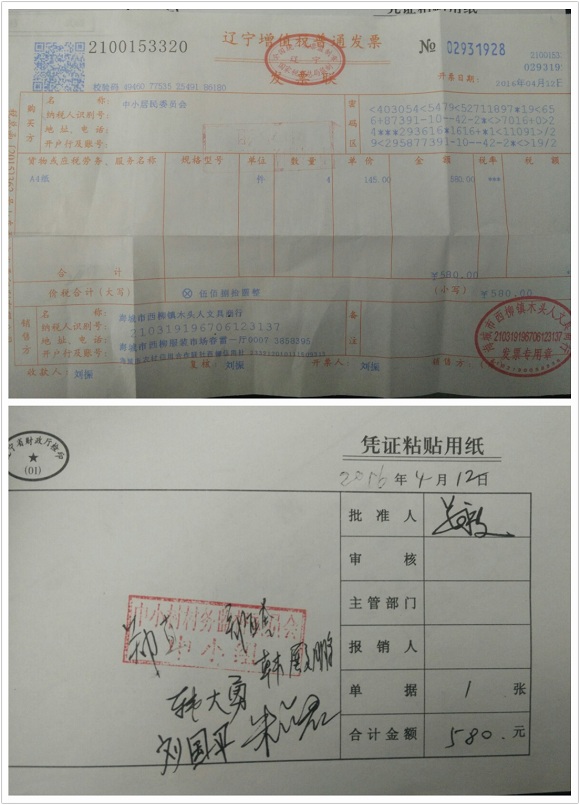 凭证粘贴用纸
2100153320
辽宁增值税普通发票
№ 02931928
2100153
029319
辽宁
发票联
校验码 49460 77535 25491 86180
开票日期: 2016年04月12日
购买方
名称: 中小居民委员会
纳税人识别号:
地址、电话:
开户行及账号:
密码区
<403054<5479<52711897*19<65
6+87391-10--42-2*<>7016+0>2
4***293616*1616+*1<11091>/2
9<295877391-10--42-2*<>19/2
货物或应税劳务、服务名称 规格型号 单位 数量 单价 金额 税率 税额
A4纸 件 4 145.00 580.00 ***
合计 ¥580.00
价税合计(大写) ⊗ 伍佰捌拾圆整 (小写) ¥580.00
销售方
名称: 海城市西柳镇木头人文具商行
纳税人识别号: 210319196706123137
地址、电话: 海城市西柳服装市场春富一厅9007 3858395
开户行及账号:
备注
收款人: 刘振 复核: 刘振 开票人: 刘振 销售方:
海城市西柳镇木头人文具商行
210319196706123137
发票专用章
省财政厅检印
(01)
凭证粘贴用纸
2016年4月12日
批准人
审核
主管部门
报销人
单据 1 张
合计金额 580.元
中小村村务监督委员会
中小组
韩大勇
刘国平